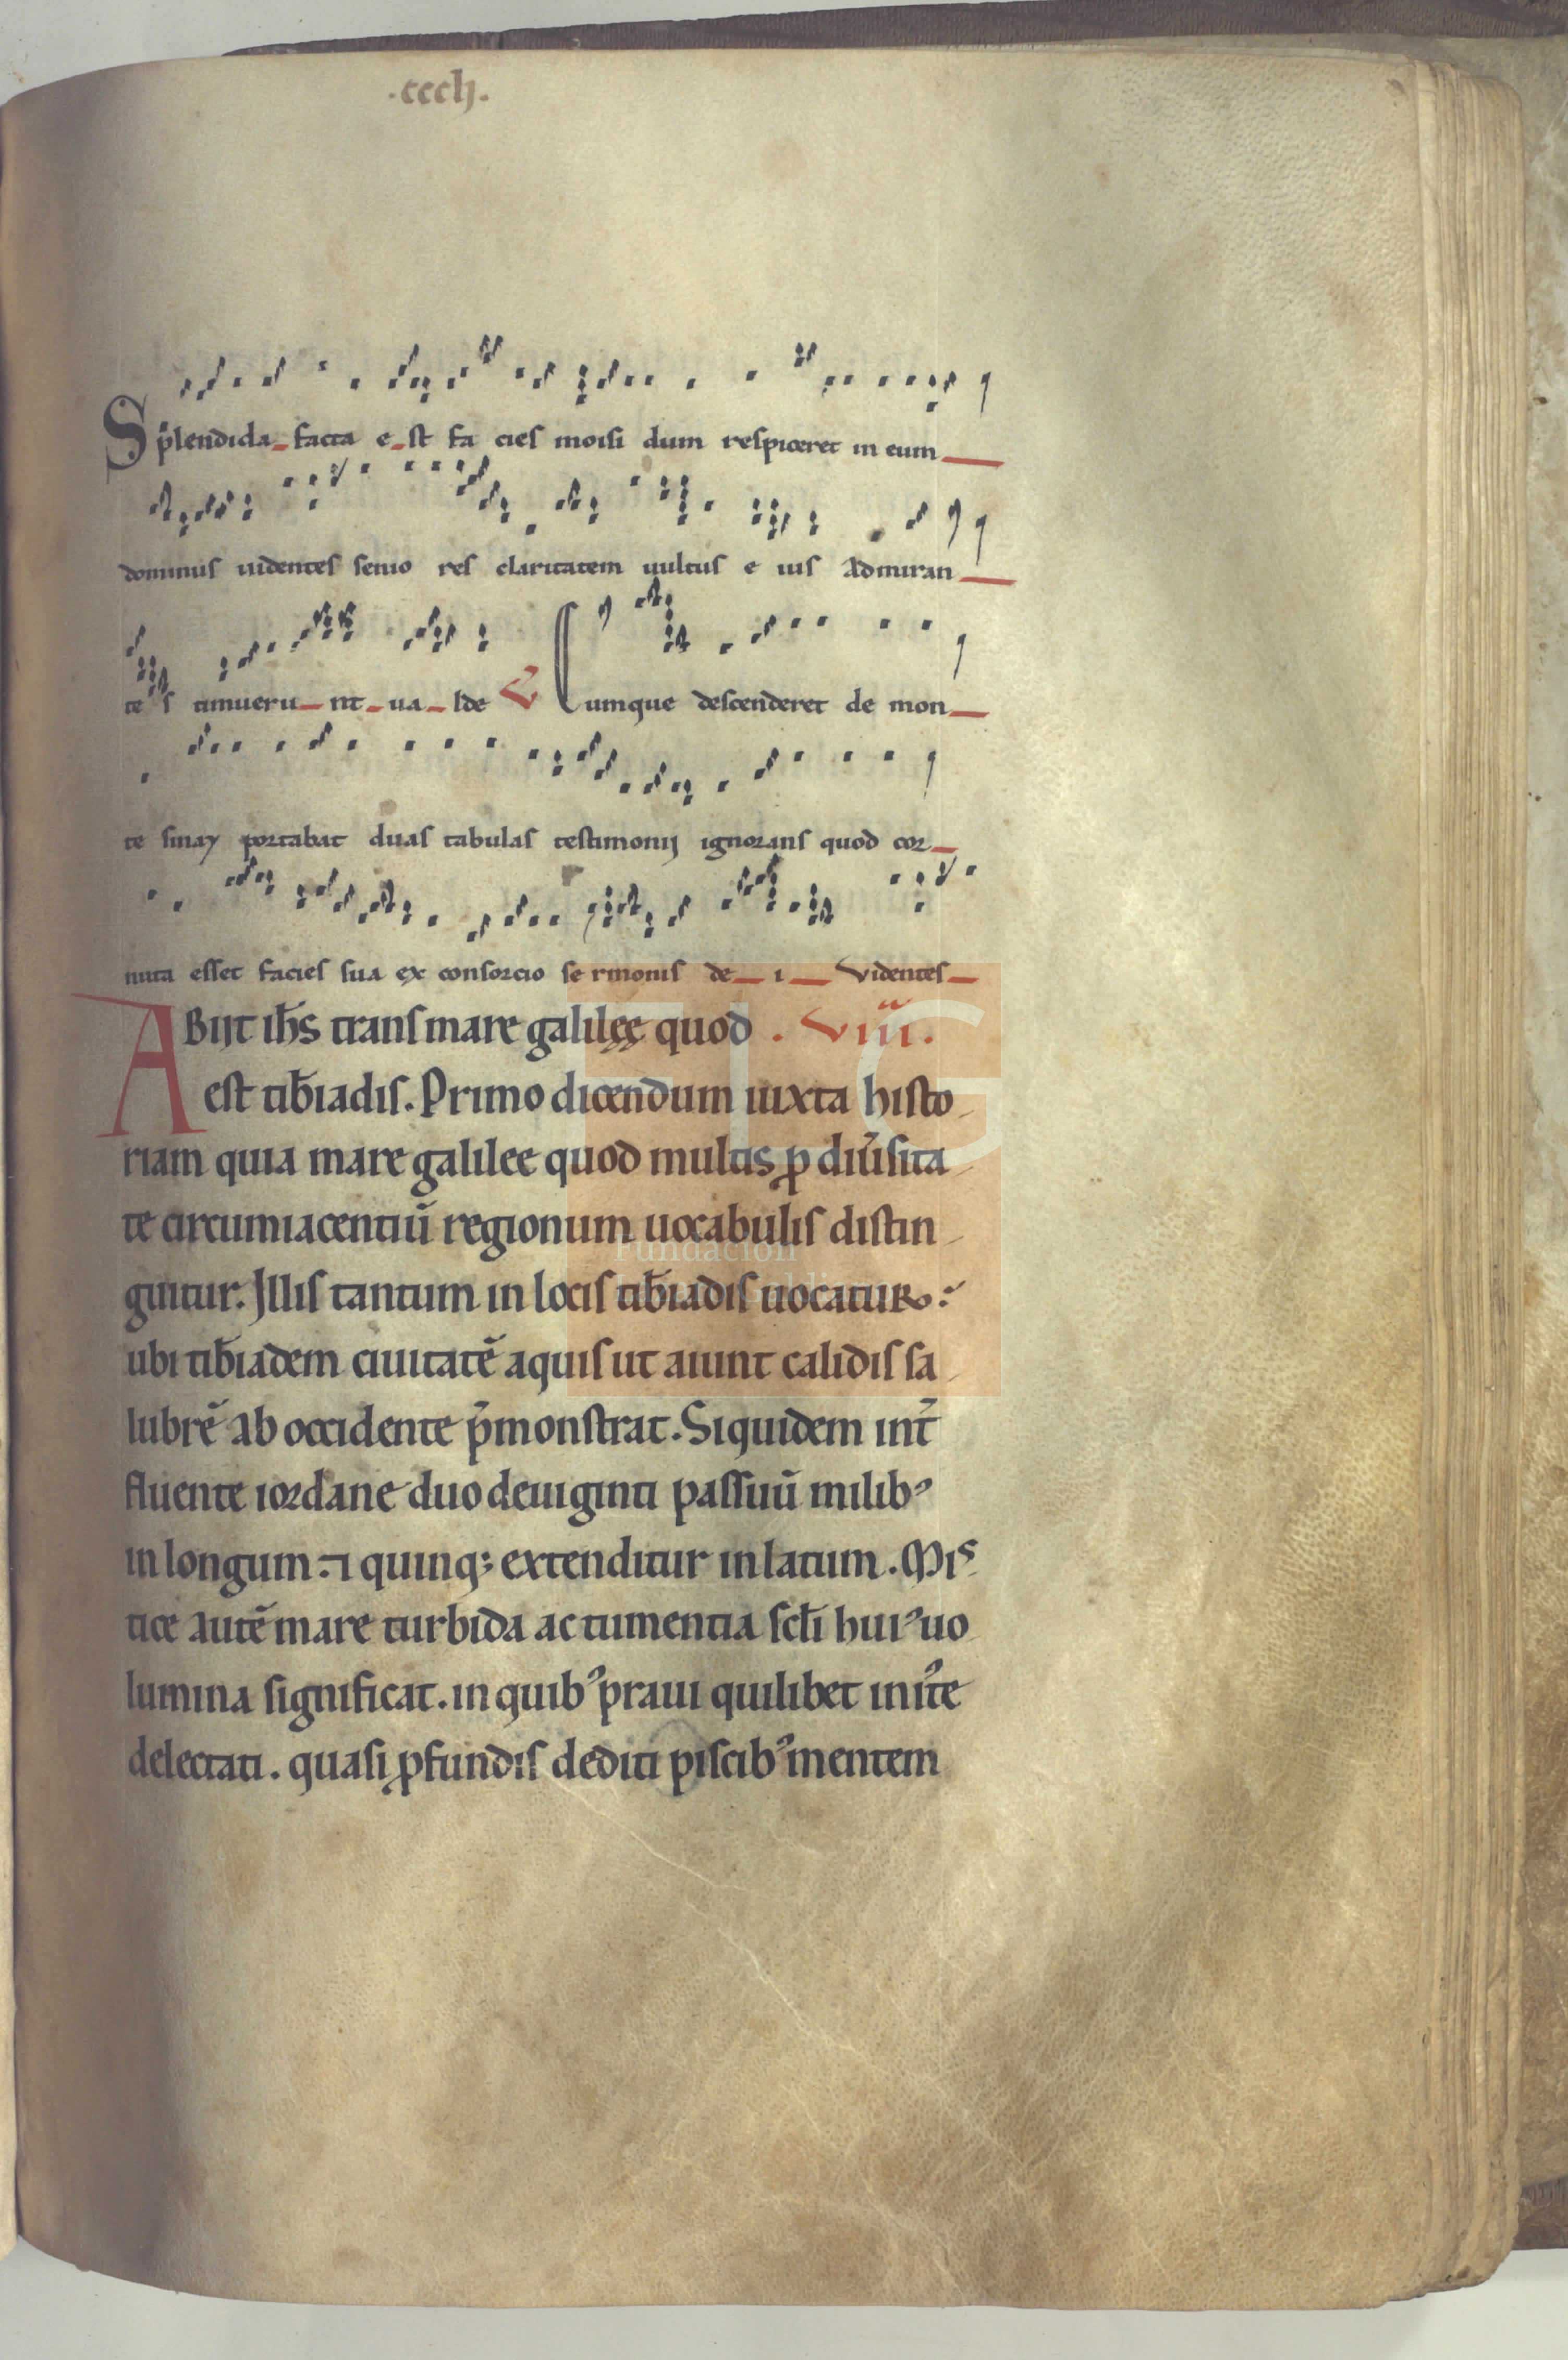 .cccLi.
Splendida facta e st fa cies moisi dum respiceret in eum
dominus uidentes senio res claritatem uultus e ius Admiran
te s timueru nt ua lde V Cumque descenderet de mon
te sinay portabat duas tabulas testimonij ignorans quod cor
nuta esset facies sua ex consorcio se rmonis de i Videntes
ABijt ih̄s trans mare galilęę quod . Viii.
est tib̄iadis. Primo dicendum iuxta histo
riam quia mare galilee quod multis ꝓ diu᷑sita
te circumiacentiū regionum uocabulis distin
guitur. Illis tantum in locis tib̄iadis uocatur:
ubi tib̄iadem ciuitatē aquis ut aiunt calidis sa
lubrē ab occidente p̄monstrat. Siquidem int᷑
fluente iordane duo deuiginti passuū milibꝰ
in longum ⁊ quinqꝫ extenditur in latum. Mis
tice autē mare turbida ac tumentia sc̄li huiꝰ uo
lumina significat. in quibꝰ praui quilibet iniu᷑te
delectati. quasi ꝓfundis dediti piscibꝰ mentem
Fundación